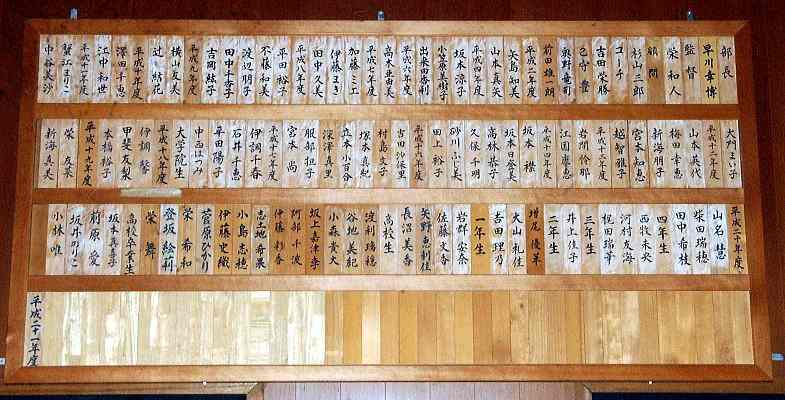 部長
早川幸博
監督
栄和人
顧問
杉山三郎
コーチ
吉田栄勝
己守豊
奥野竜司
前田雄一朗
平成二年度
矢島知美
山本真矢
平成四年度
坂本涼子
小笠原美樹子
出来田香利
平成六年度
高木亜由美
平成七年度
加藤ミエ
伊藤まき
田中久美
平成八年度
平田裕子
不藤和美
渡辺朋子
田中千香子
吉岡絲子
平成九年度
横山友美
辻結花
平成十年度
澤田千恵
江中和世
平成十一年度
蟹江まりこ
中谷美沙
大門まい子
平成十二年度
山本英代
梅田幸恵
新海朋子
宮本知恵
越智雅子
平成十三年度
岩間怜那
江園康恵
平成十四年度
坂本襟
坂本日登美
高林恭子
久保千明
砂川ふじ美
田上裕子
平成十六年度
吉田沙保里
村島文子
塚本真紀
正本小百合
深澤真里
服部担子
宮本尚
平成十七年度
伊調千春
石井千恵
早田陽子
中西はつみ
大学院生
平成十八年度
伊調馨
甲斐友梨
本橋裕子
平成十九年度
栄友菜
新海真美
平成二十年度
山名慧
柴田瑞穂
田中希枝
四年生
西牧未央
河村友海
梶田瑞華
三年生
井上佳子
二年生
増尾優菜
大山礼佳
吉田理乃
一年生
岩群安奈
佐藤文香
矢野恵利佳
長沼美香
高校生
渡利瑞穂
谷地美紀
小森貴大
坂上嘉津季
阿部千波
伊藤彩香
志土地希果
小島志穂
伊藤史織
菅原ひかり
栄希和
登坂絵莉
栄舞
高校卒業生
坂本真喜子
前原愛
坂井のりこ
小林唯
平成二十一年度